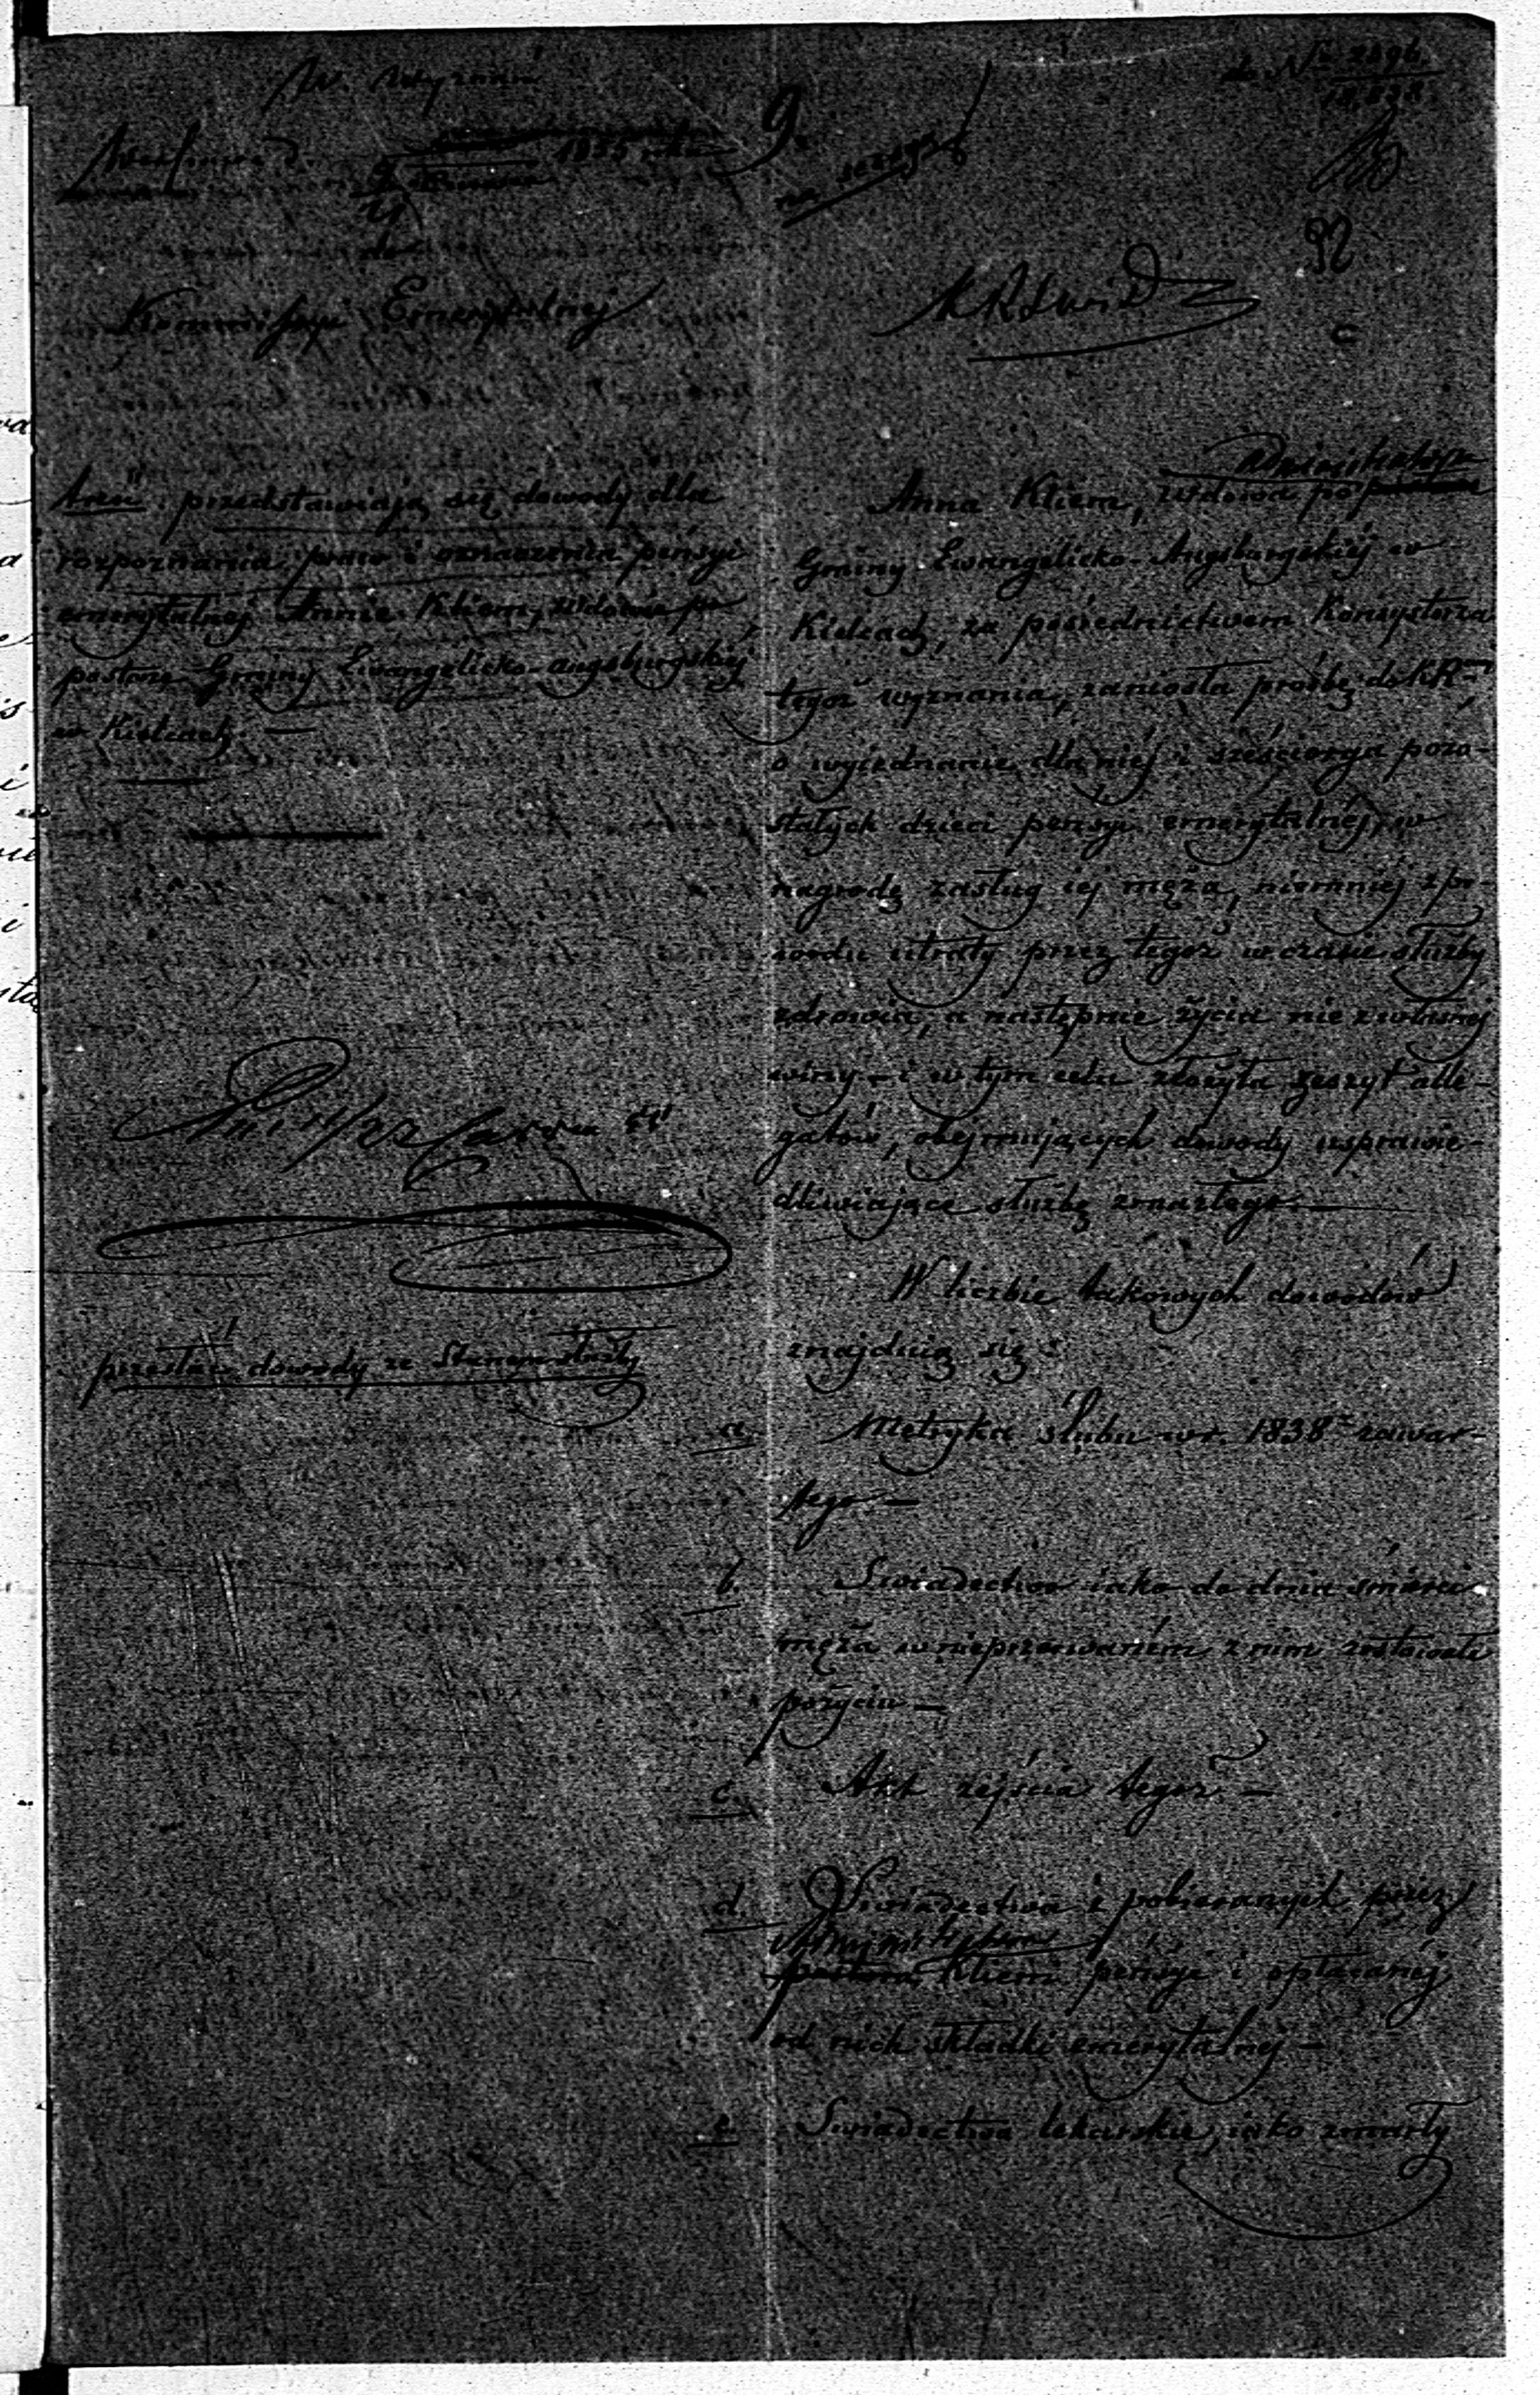 W. Wyznań
do N° 2896
Warszawa d. 1855 roku
9.
do
92
Kommissyi Emerytalnej
KRSWiD
c
treść. przedstawiają się dowody dla
rozpoznania praw i oznaczenia pensyi
emerytalnej Annie Kliem, wdowie po
pastorze Gminy Ewangelicko-augsburgskiej
w Kielcach. —
przesłać dowody ze Stanem służby
Administratorze
Anna Kliem, wdowa po pastorze
Gminy Ewangelicko-Augsburgskiéj w
Kielcach, za pośrednictwem Konsystorza
tegoż wyznania, zaniosła prośbę do KR
o wyjednanie dla niéj i sześciorga pozo-
stałych dzieci pensyi emerytalnéj, w
nagrodę zasług iej męża, niemniéj z po-
wodu utraty przez tegoż w czasie służby
zdrowia, a następnie życia nie z własnej
winy — i w tym celu złożyła zeszyt alle-
gatów, obejmujących dowody usprawie-
dliwiające służbę zmarłego. —
W liczbie takowych dowodów
znajduią się:
a. Metryka ślubu w r. 1838 zawar-
tego —
b. Swiadectwo iako do dnia śmierci
męża w nieprzerwaném z nim zostawała
pożyciu —
c. Akt zejścia tegoż —
d. Swiadectwa z pobieranych przez
Administratora
pastora Kliem pensyi i opłacanéj
od nich składki emerytalnej —
e. Swiadectwa lekarskie, iako zmarły